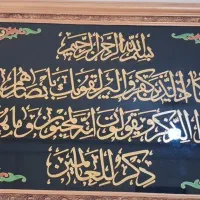 بسم الله الرحمن الرحيم
وإن يكاد الذين كفروا ليزلقونك بأبصارهم لما
سمعوا الذكر ويقولون إنه لمجنون وما هو إلا
ذكر للعالمين